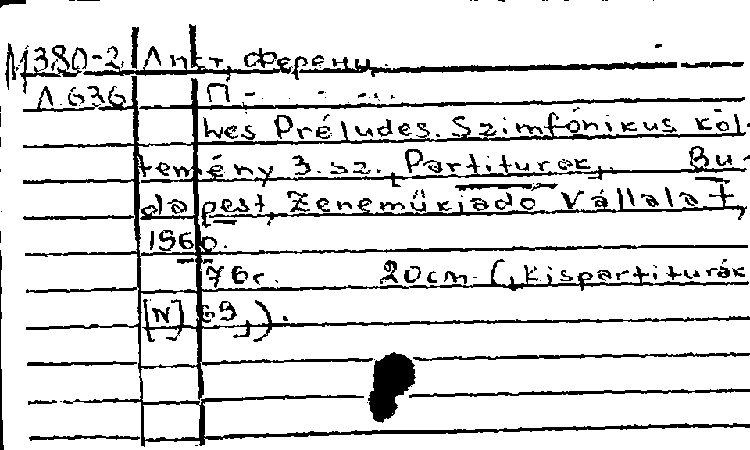 М380-2 Лист, Ференц.
Л 636 П
Les Préludes. Szimfónikus köl-
temény 3. sz., Partiturák,. Bu-
dapest, Zeneműkiadó Vállalat,
1960.
76с. 20cm. (,Kispartiturák
[N] 69,).